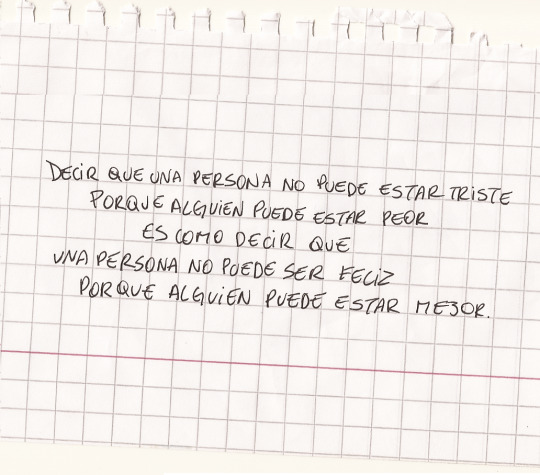 DECIR QUE UNA PERSONA NO PUEDE ESTAR TRISTE
PORQUE ALGUIEN PUEDE ESTAR PEOR
ES COMO DECIR QUE
UNA PERSONA NO PUEDE SER FELIZ
PORQUE ALGUIEN PUEDE ESTAR MEJOR.